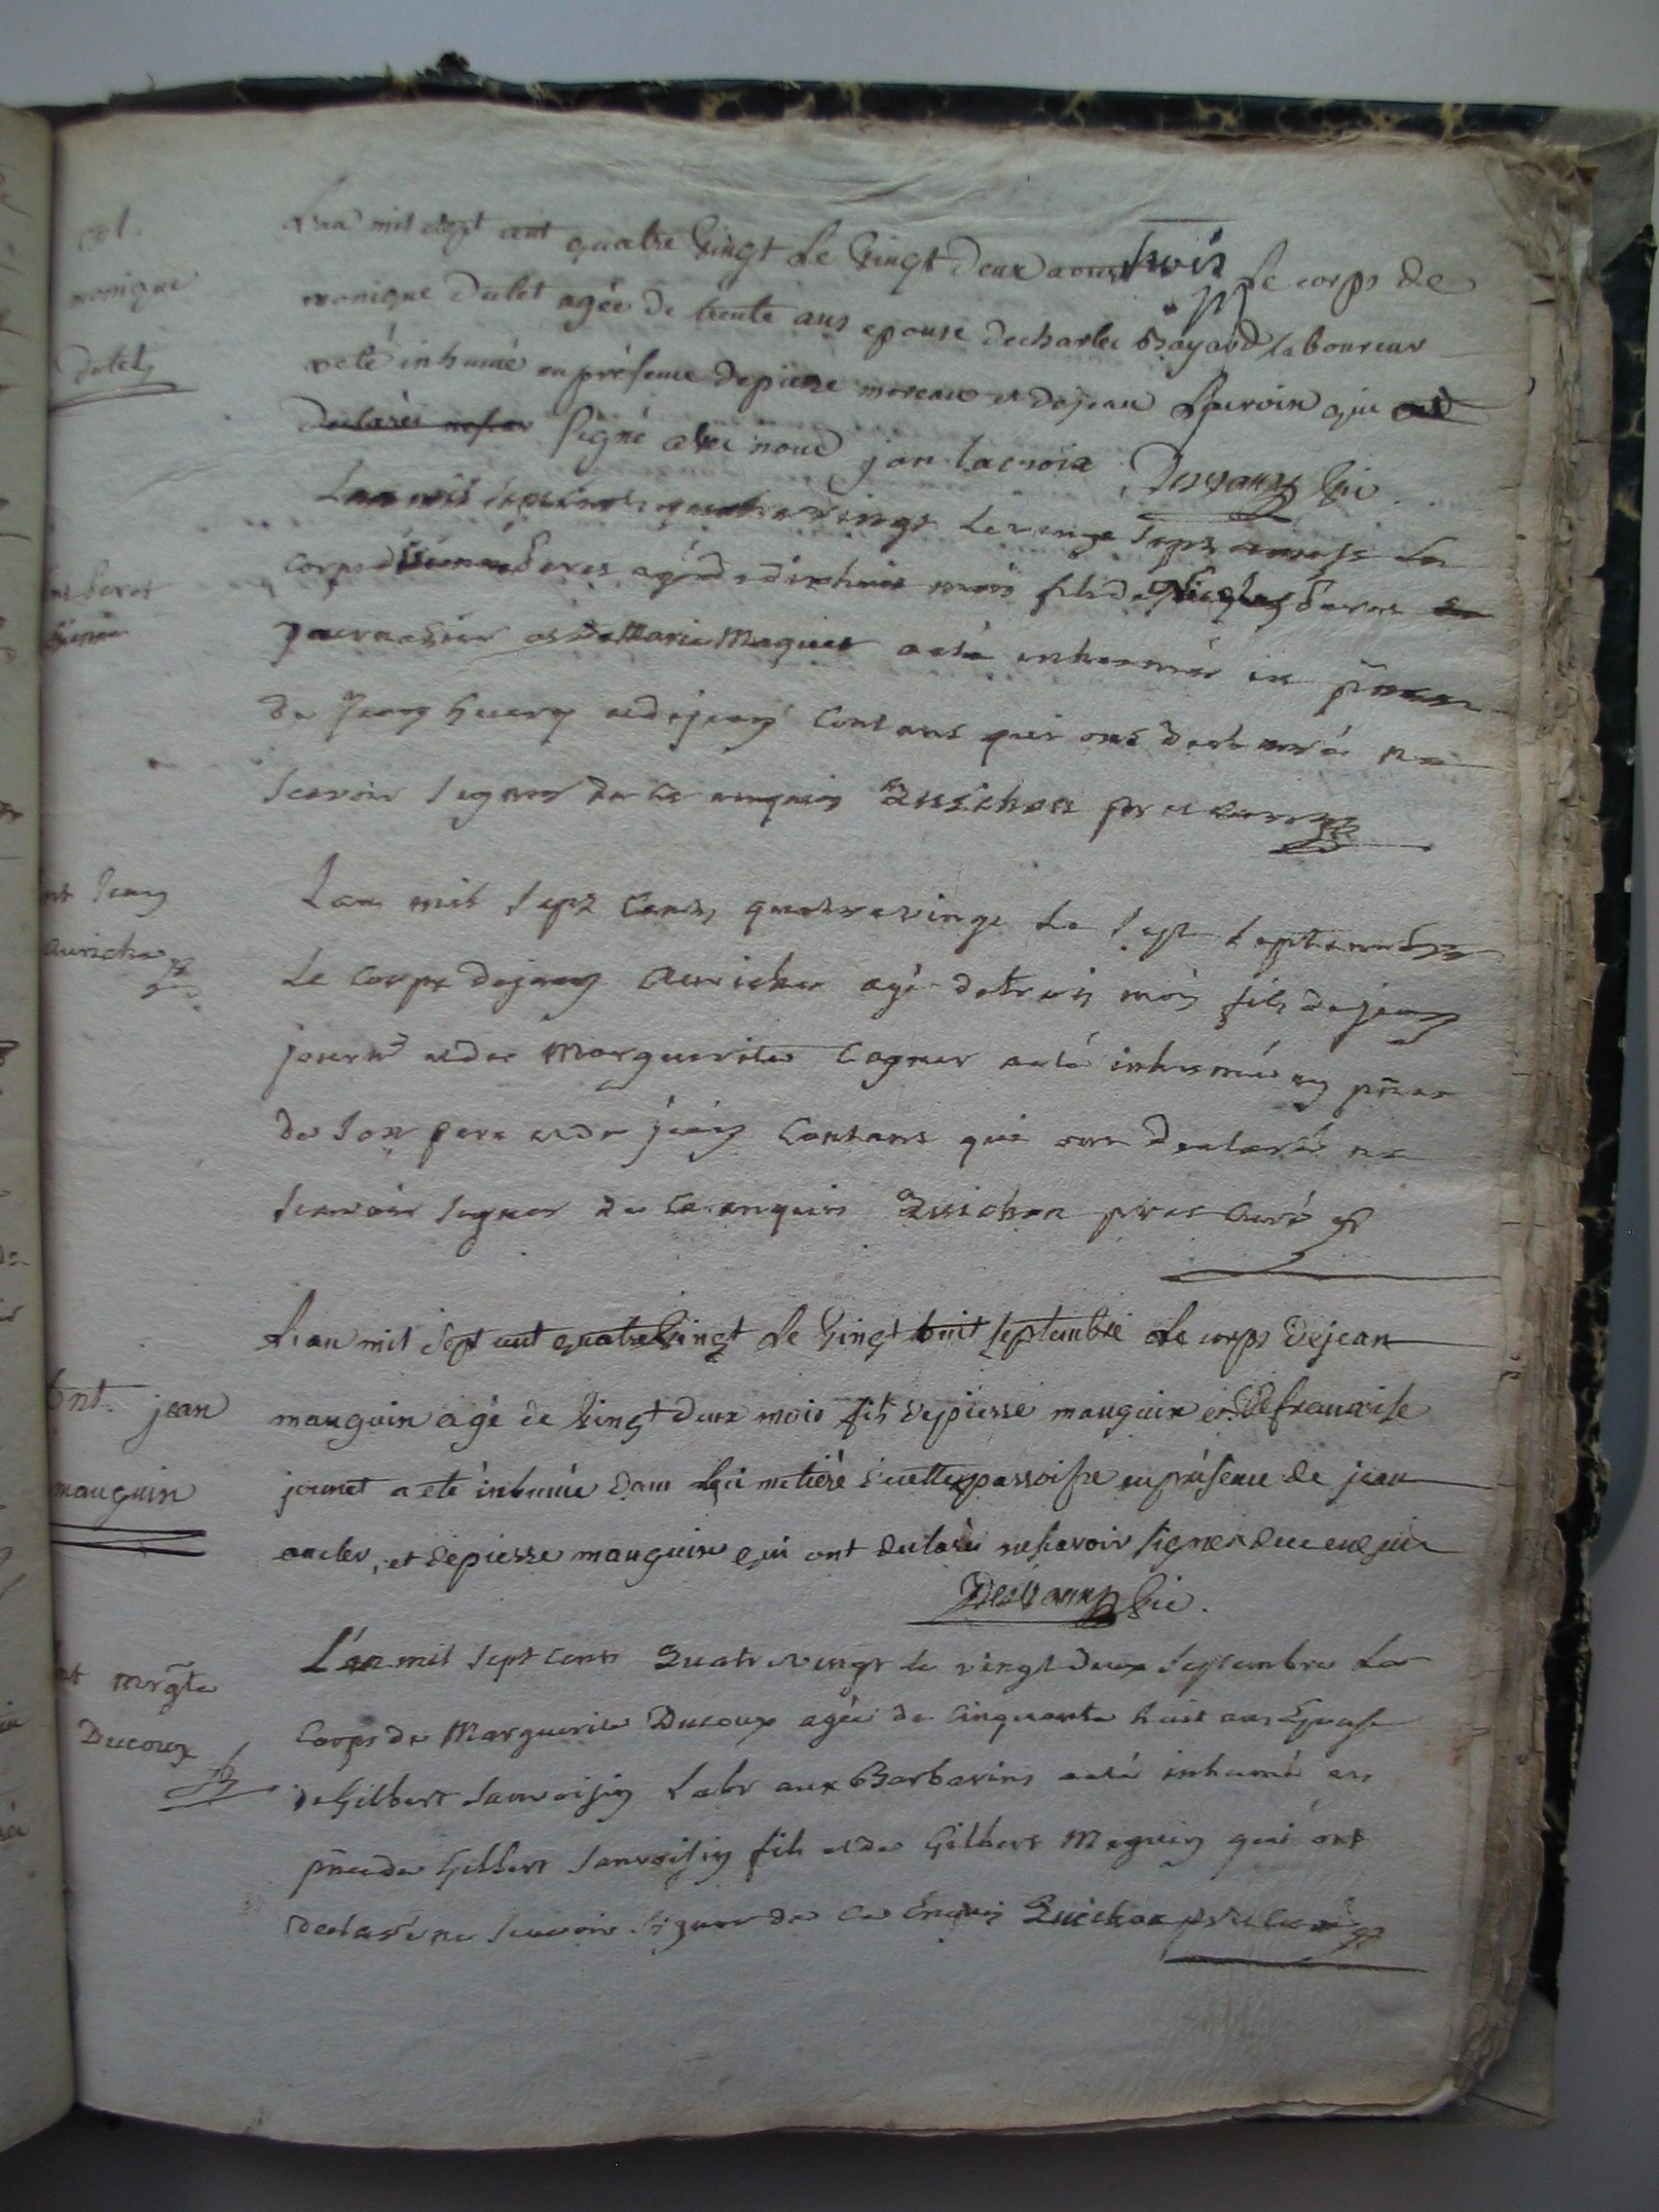 monique
dulet
L'an mil sept cent quatre vingt Le vingt deux aoust Le corps de
monique dulet agée de trente ans epouse de charles Bayard laboureur
a eté inhumé en présence de pierre moreau et de jean qui ont
declarés signé avec nous jan lacroix Desvaux vic.
L'an mil sept cents quatre vingt le vingt sept aoust Le
corps agé de dixhuit mois fils de Nicolas
journalier et de Marie Maguer a esté inhumé en
de Jean huery et de jean Contans qui ont declaré ne
scavoir signer de ce enquis Quichon curé
Jean
Auriche
Lan mil sept cents quatre vingt le sept septembre
Le corps de jean Auriche agé de trois mois fils de jean
journ et de Marguerite Cagner a esté inhumé en pnce
de son pere et de jean Contans qui ont declaré ne
scavoir signer de ce enquis Quichon curé
Ent. jean
mauguin
L'an mil sept cent quatre vingt Le vingt huit septembre Le corps de jean
mauguin agé de vingt deux mois fils de pierre mauguin et de francoise
jounet a eté inhumé dans le cimetiére de cette parroisse en présence de jean
aucler, et de pierre mauguin qui ont declarés ne scavoir signer de ce enquis
Desvaux vic.
mrgte
Ducoux
L'an mil sept cents Quatre vingt le vingt deux septembre Le
Corps de Marguerite Ducoux agée de Cinquante huit ans Epouse
de Gilbert Sanvoisin Labr aux Barbarins a esté inhumé en
pnce de Gilbert Sanvoisin fils et de Gilbert Meguin qui ont
declaré ne scavoir signer de ce Enquis Quichon curé